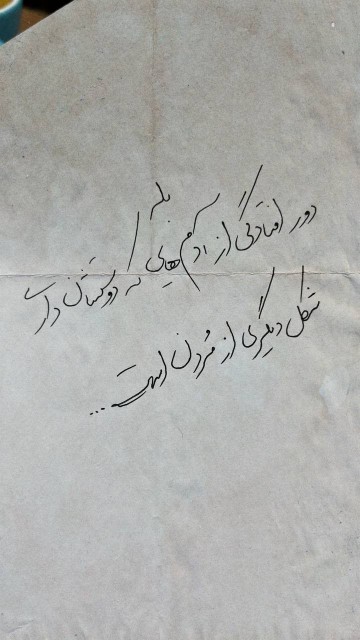 بله
دور افتادگی از آدم هایی که دوستشان داری
شکل دیگری از مُردن است...